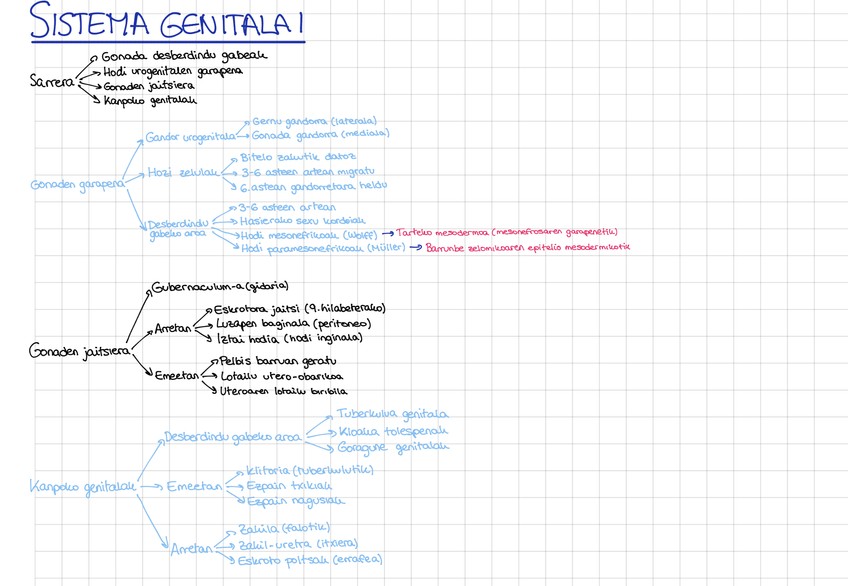 SISTEMA GENITALA I
Sarrera
Gonada desberdindu gabeak
Hodi urogenitalen garapena
Gonaden jaitsiera
Kanpoko genitalak
Gonaden garapena
Gandor urogenitala
Gernu gandorra (laterala)
Gonada gandorra (mediala)
Hozi zelulak
Bitelo zakutik datoz
3-6 asteen artean migratu
6.astean gandorretara heldu
Desberdindu gabeko aroa
3-6 asteen artean
Hasierako sexu kordoiak
Hodi mesonefrikoak (Wolff) → Tarteko mesodermoa (mesonefrosaren garapenetik)
Hodi paramesonefrikoak (Müller) → Barrunbe zelomikoaren epitelio mesodermikotik
Gonaden jaitsiera
Gubernaculum-a (gidaria)
Arretan
Eskrotora jaitsi (9.hilabeterako)
Luzapen baginala (peritoneo)
Iztai hodia (hodi inginala)
Emeetan
Pelbis barruan geratu
Lotailu utero-obarikoa
Uteroaren lotailu biribila
Kanpoko genitalak
Desberdindu gabeko aroa
Tuberkulua genitala
Kloaka tolespenak
Goragune genitalak
Emeetan
Klitoria (tuberkulutik)
Ezpain txikiak
Ezpain nagusiak
Arretan
Zakila (falotik)
Zakil-uretra (itxiera)
Eskroto poltsak (errafea)